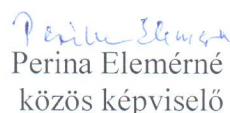 Perina Elemérné
Perina Elemérné
közös képviselő